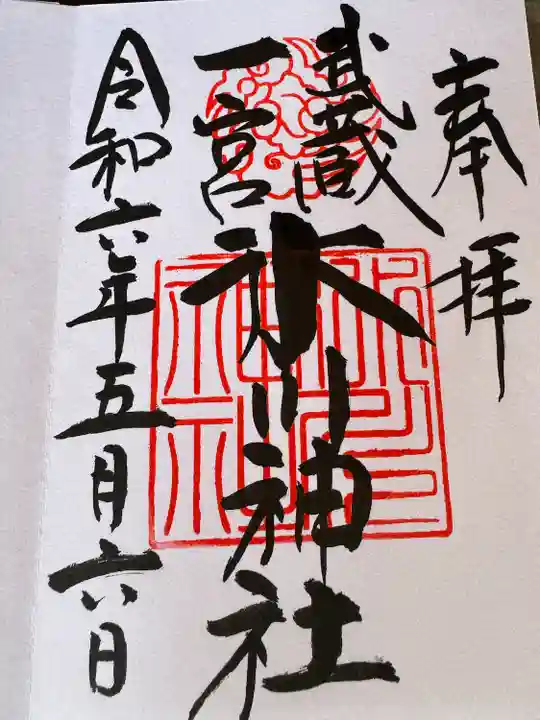 奉拝
武蔵
一宮
氷川神社
令和六年五月六日